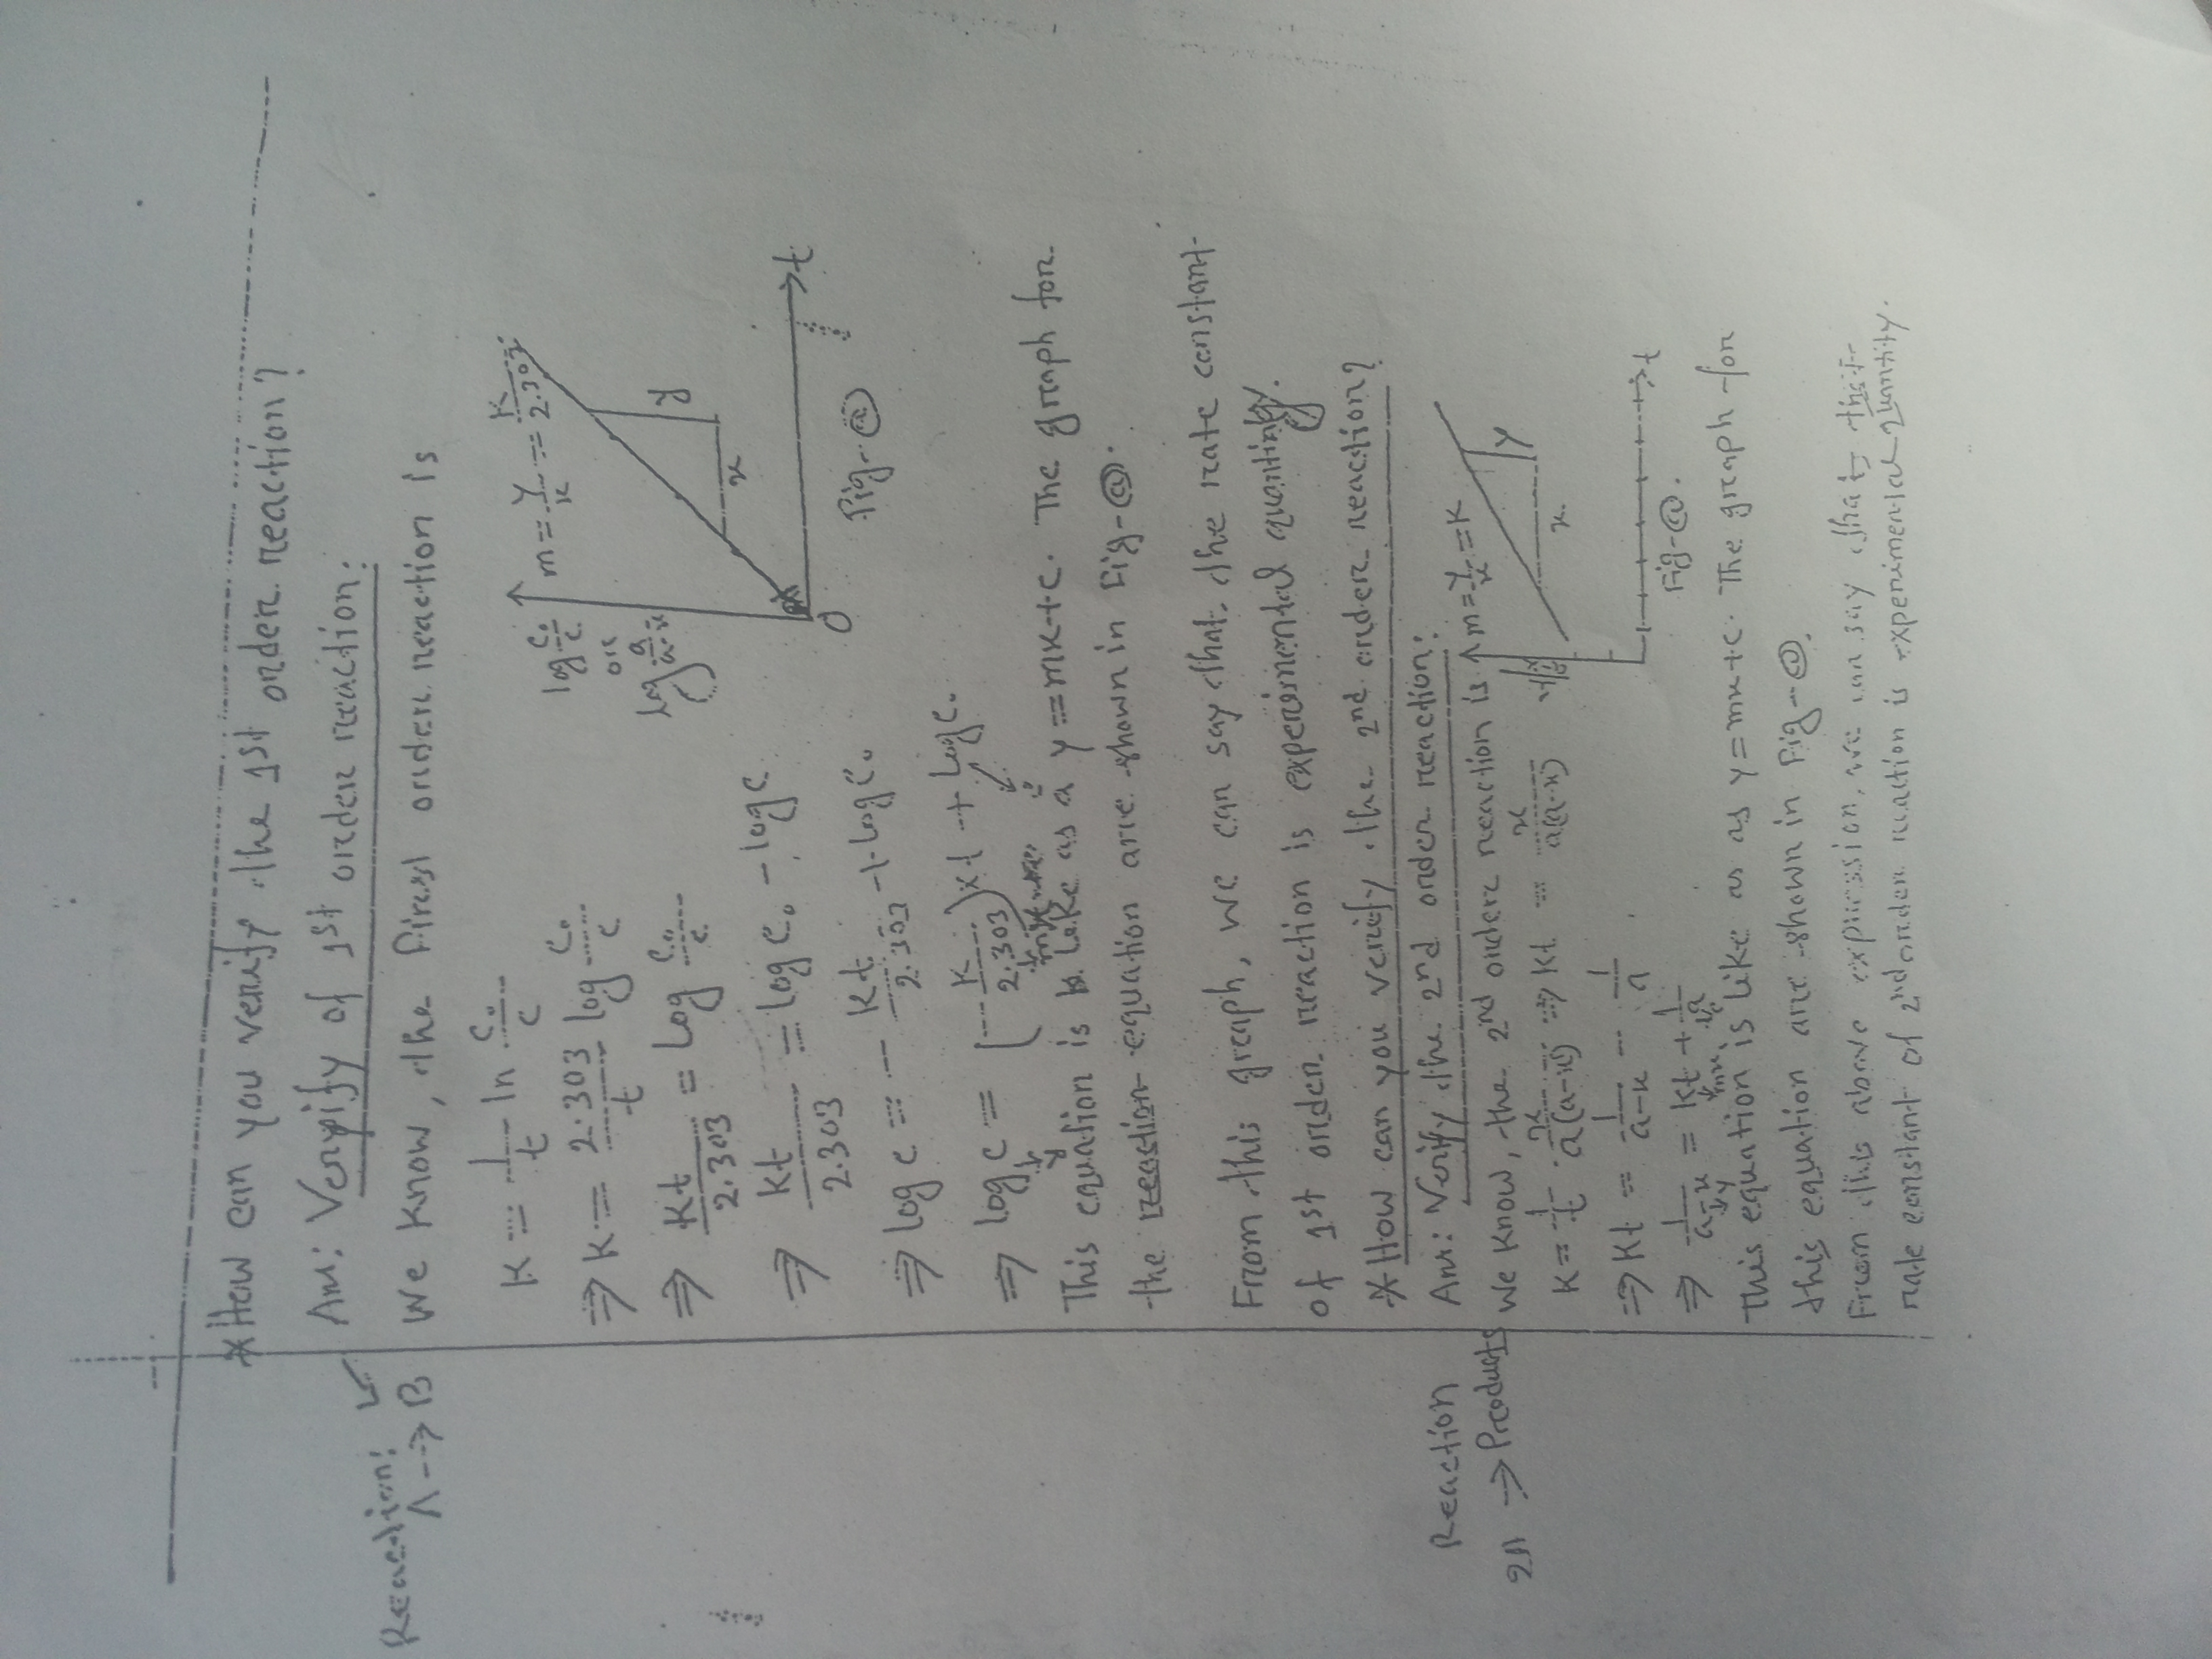 *How can you verify the 1st order reaction?
Ans: Veryify of 1st order reaction:
Reaction:
A → B
We know, the first order reaction is
K = 1/t ln C₀/C
⇒ K = 2.303/t log C₀/C
⇒ Kt/2.303 = log C₀/C
⇒ Kt/2.303 = log C₀ - log C
⇒ log C = - Kt/2.303 + log C₀
⇒ log C = (- K/2.303) × t + log C₀
y
log C₀/C
or
log a/a-x
m = y/x = K/2.303
y
x
O
t
Fig-ⓐ
This equation is like as a y = mx + c. The graph for
the reaction equation are shown in Fig-ⓐ.
From this graph, we can say that the rate constant
of 1st order reaction is experimental
*How can you verify the 2nd order reaction?
Ans: Verify the 2nd order reaction:
Reaction
2A → Products
We know, the 2nd order reaction is
K = 1/t · x/a(a-x) ⇒ Kt = x/a(a-x)
⇒ Kt = 1/a-x - 1/a
⇒ 1/a-x = Kt + 1/a
y mx c
m = y/x = K
y
x
t
Fig-ⓐ.
This equation is like as as y = mx + c. The graph for
this equation are shown in Fig-ⓐ.
From this above expression, we can say that, that
rate constant of 2nd order reaction is experimental quantity.